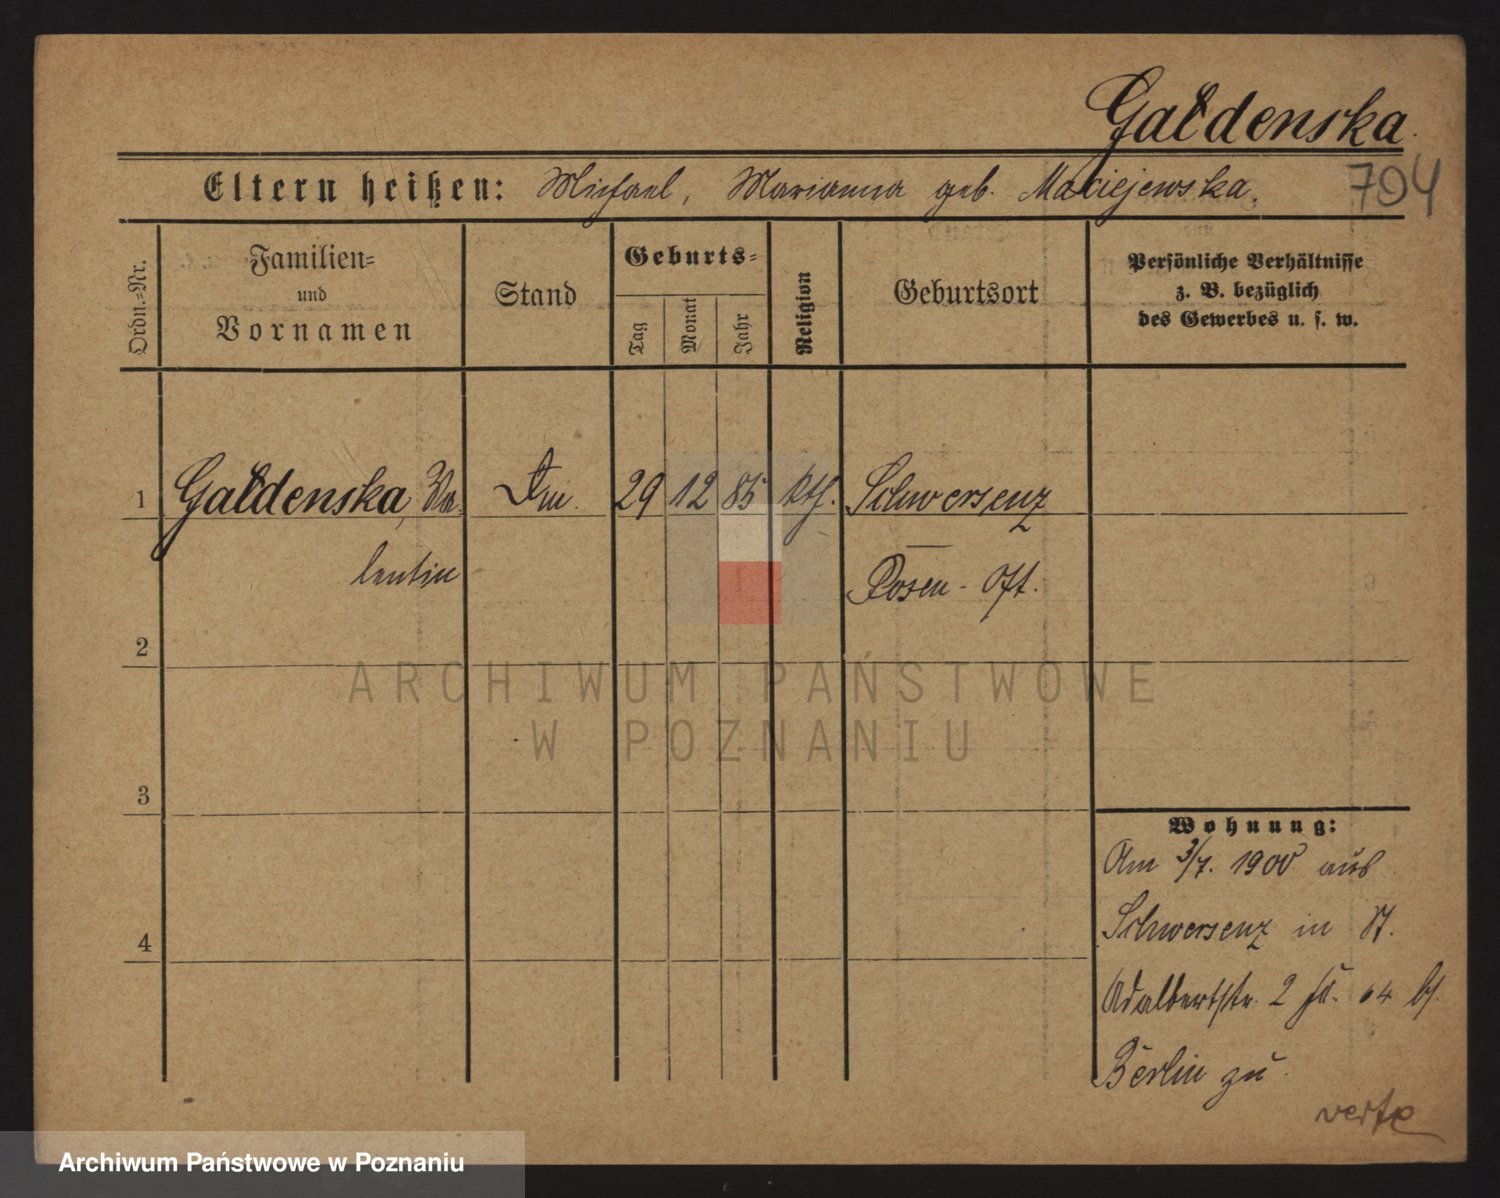 Gałdenska
Eltern heißen: Michael, Marianna geb. Maciejewska.
704
Ordn.-Nr.
Familien-
und
Vornamen
Stand
Geburts-
Tag
Monat
Jahr
Religion
Geburtsort
Persönliche Verhältnisse
z. B. bezüglich
des Gewerbes u. s. w.
1 Gałdenska, Va- 29 12 85 kth. Schwersenz
lentin Posen-Ost.
2
ARCHIWUM PAŃSTWOWE
W POZNANIU
3
Wohnung:
Am 3/7. 1900 aus
Schwersenz in St.
4
Adalbertstr. 2
Berlin zu
verte
Archiwum Państwowe w Poznaniu